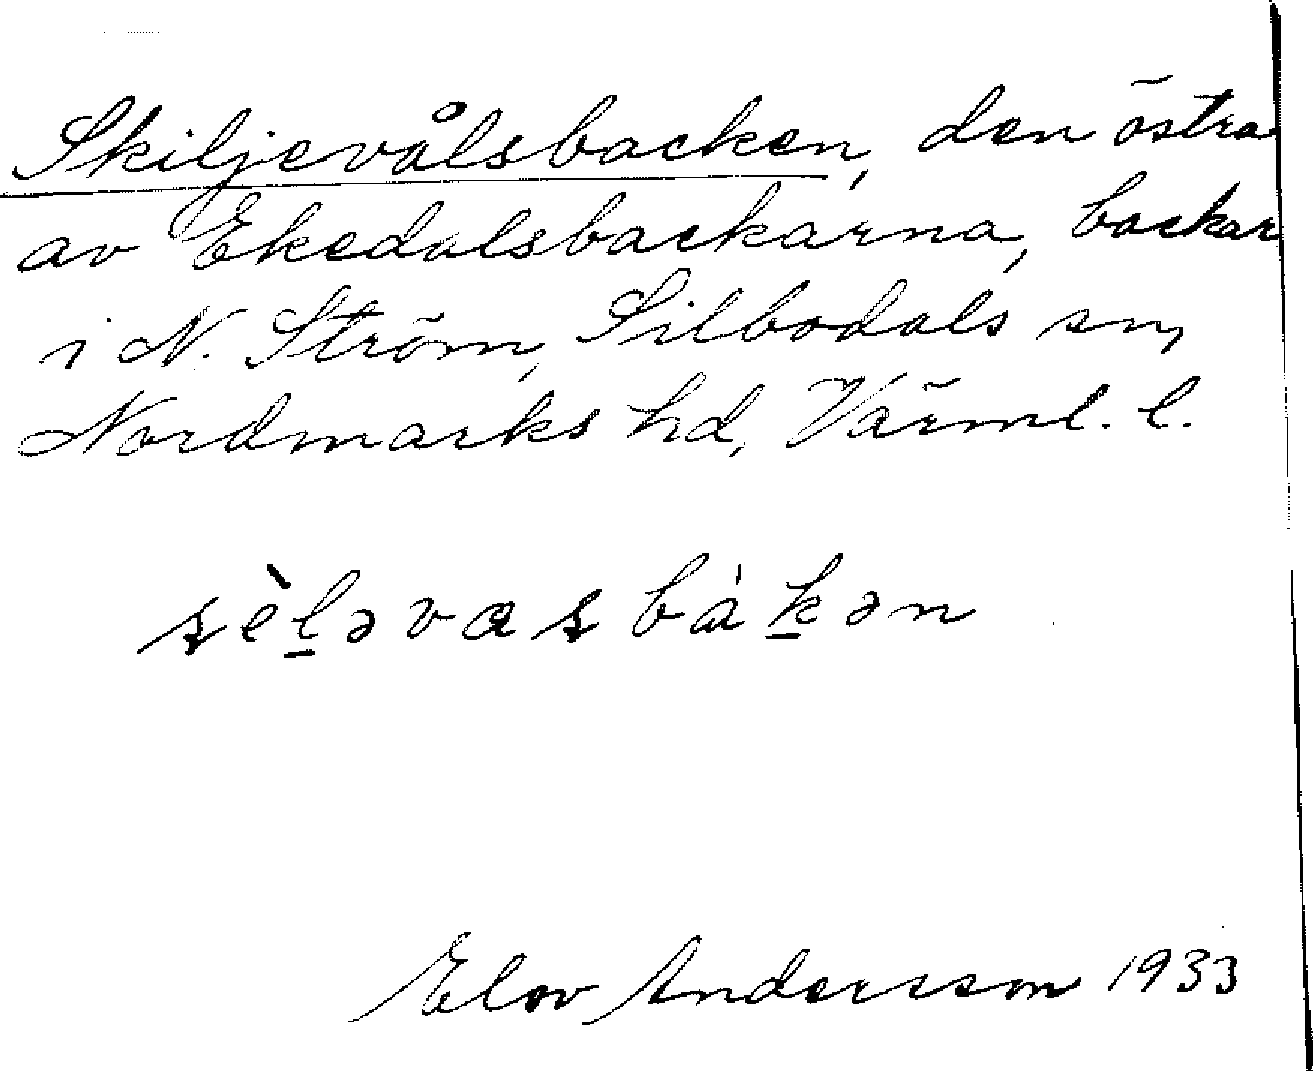 Skiljevålsbacken, den östra
av Ekedalsbackarna, backar
i N. Ström, Silbodals sn,
Nordmarks hd, Värml. l.
sèl̠əvasbàk̠ən
Elov Andersson 1933